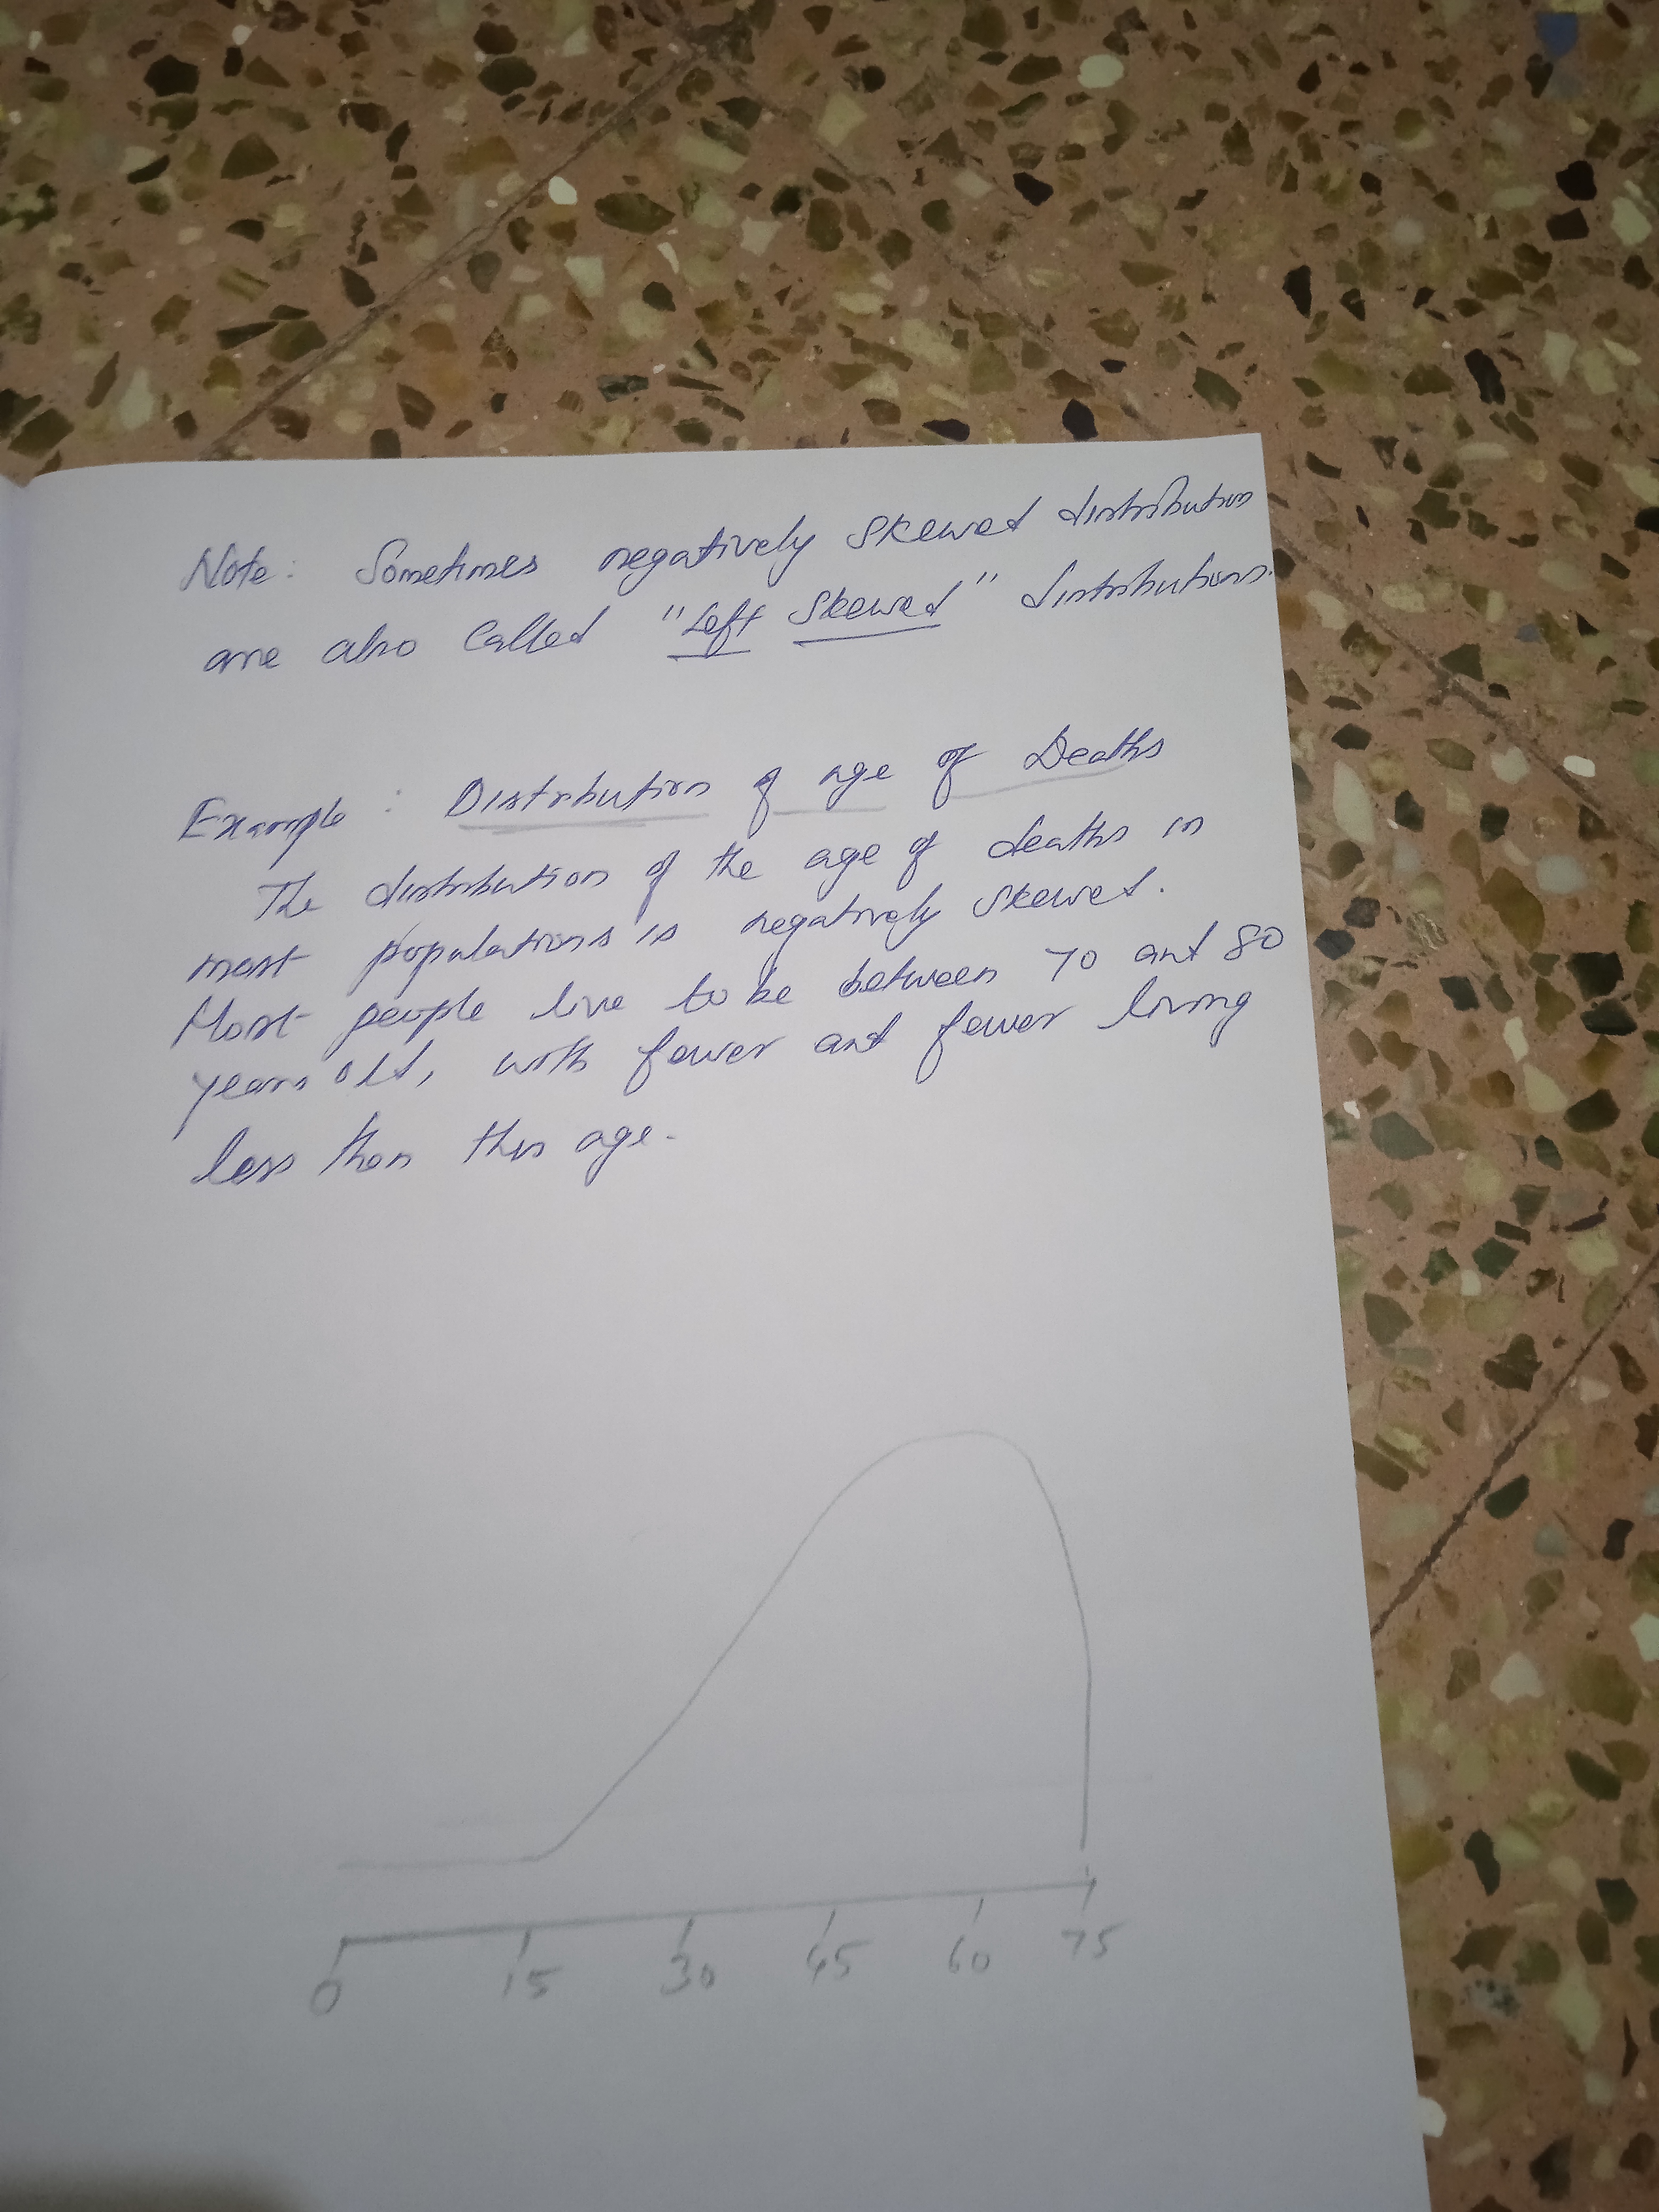 Note: Sometimes negatively skewed distribution
are also called "Left Skewed" distributions.
Example: Distribution of age of Deaths
The distribution of the age of deaths in
most populations is negatively skewed.
Most people live to be between 70 and 80
years old, with fewer and fewer living
less than this age.
0 15 30 45 60 75